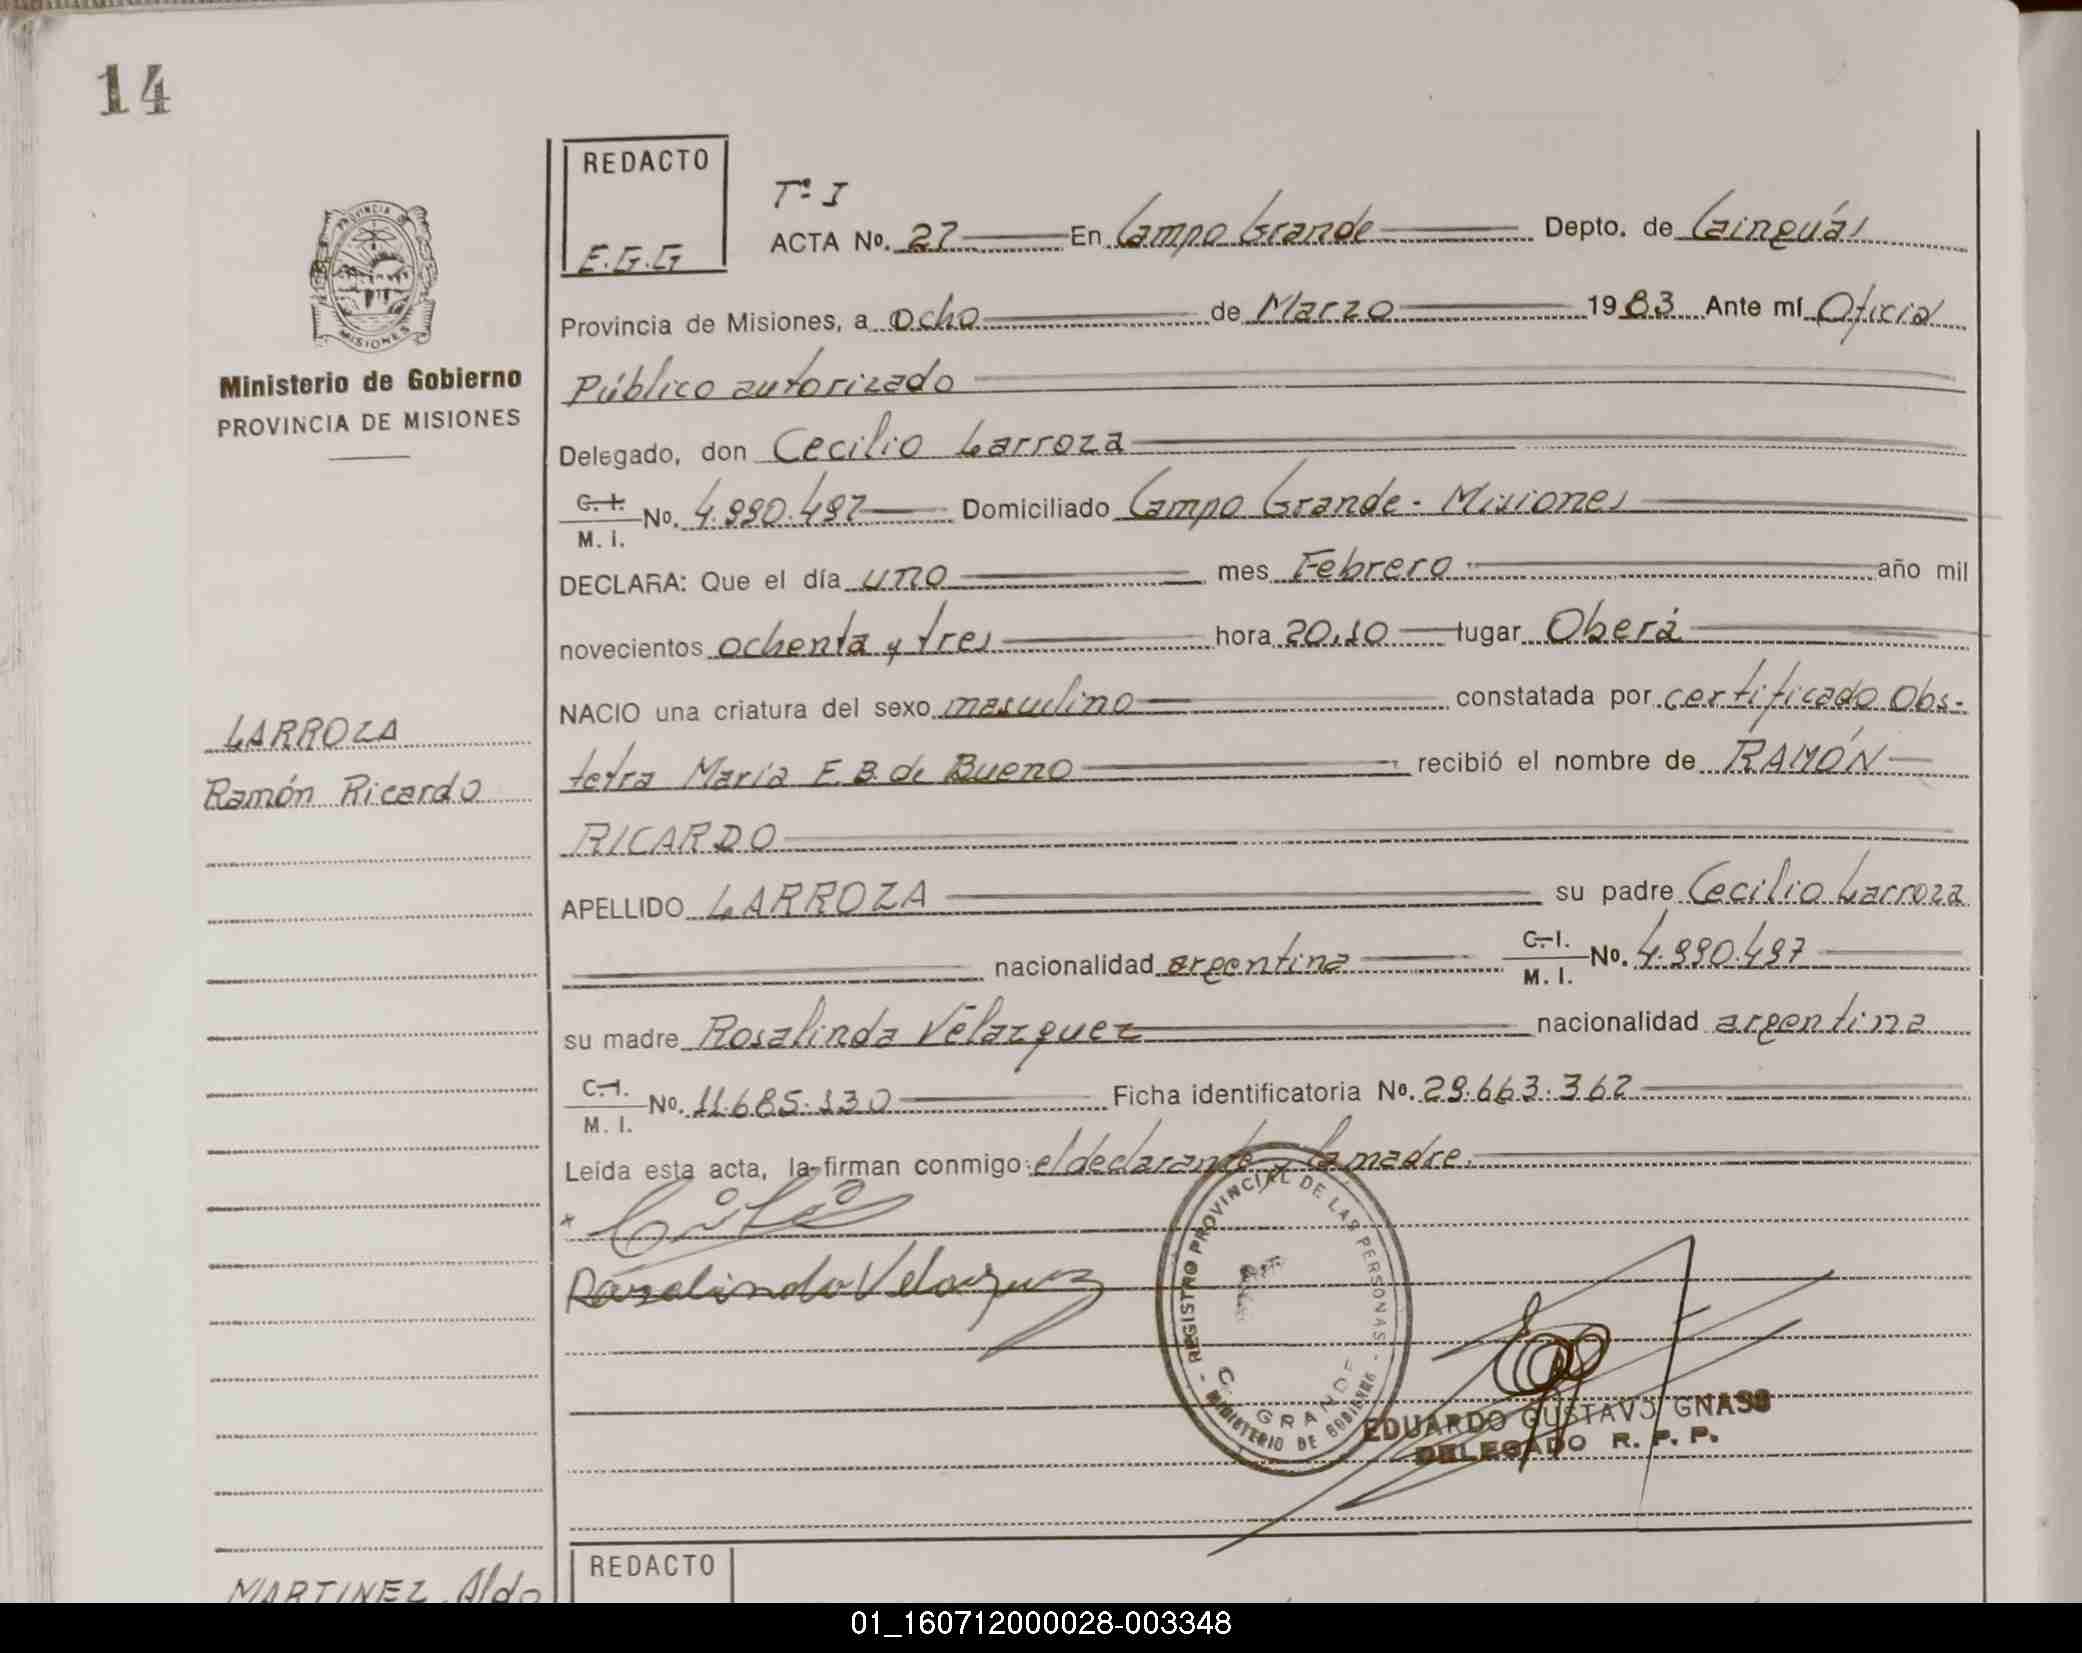 14
REDACTO
E.G.G
Tº I
ACTA No. 27 En Campo Grande Depto. de Cainguás
Provincia de Misiones, a ocho de Marzo 1983 Ante mí Oficial
Público autorizado
Delegado, don Cecilio Larroza
C. I.
M. I.
No. 4.990.497 Domiciliado Campo Grande - Misiones
DECLARA: Que el día uno mes Febrero año mil
novecientos ochenta y tres hora 20,10 lugar Oberá
NACIO una criatura del sexo masculino constatada por certificado Obs-
tetra María E.B. de Bueno recibió el nombre de RAMÓN
RICARDO
APELLIDO LARROZA su padre Cecilio Larroza
nacionalidad argentina C. I.
M. I.
No. 4.990.497
su madre Rosalinda Vélazquez nacionalidad argentina
C. I.
M. I.
No. 11.685.130 Ficha identificatoria No. 29.663.362
Leída esta acta, la firman conmigo: el declarante y la madre.
Rosalinda Velazquez
REGISTRO PROVINCIAL DE LAS PERSONAS
GRANDE
MINISTERIO DE GOBIERNO
EDUARDO GUSTAVO GNASS
DELEGADO R. P. P.
PROVINCIA D
MISIONES
Ministerio de Gobierno
PROVINCIA DE MISIONES
LARROZA
Ramón Ricardo
MARTINEZ, Aldo
REDACTO
01_160712000028-003348